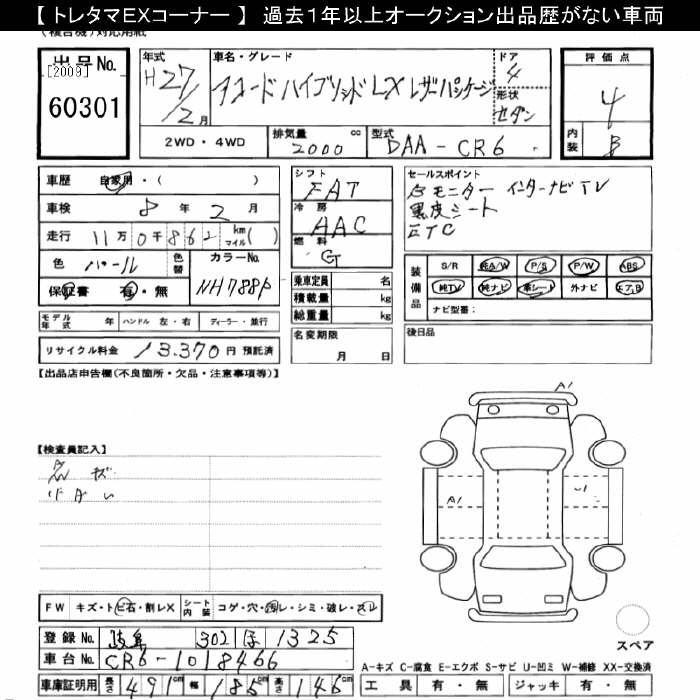 【 トレタマEXコーナー 】 過去1年以上オークション出品歴がない車両
(複合機)対応用紙
出品No.
[2009]
60301
年式
H27/2月
車名・グレード
アコードハイブリッドLX レザーパッケージ
ドア
4
形状
セダン
評価点
4
内装
B
2WD・4WD
排気量
2000 cc
型式
DAA-CR6
車歴 自家用・( )
車検 8年2月
走行 11万0千862 km マイル( )
色 パール
色替
カラーNo.
NH788P
保証書 有・無
シフト
FAT
冷房
AAC
燃料
G
乗車定員 名
積載量 kg
総重量 kg
セールスポイント
モニター インターナビTV
黒皮シート
ETC
装備品
S/R 純A/W P/S P/W ABS
純TV 純ナビ 革シート 外ナビ エアB
ナビ型番:
モデル年式 年 ハンドル 左・右 ディーラー・並行
リサイクル料金 13.370円 預託済
名変期限
月 日
後日品
【出品店申告欄(不良箇所・欠品・注意事項等)】
【検査員記入】
A1
A1
FW キズ・トビ石・割レX
シート内装 コゲ・穴・汚レ・シミ・破レ・スレ
登録No. 岐阜 302 ほ 1325
車台No. CR6-1018466
車庫証明用 長さ 491cm 幅 185cm 高さ 146cm
スペア
A-キズ C-腐食 E-エクボ S-サビ U-凹ミ W-補修 XX-交換済
工具 有・無 ジャッキ 有・無